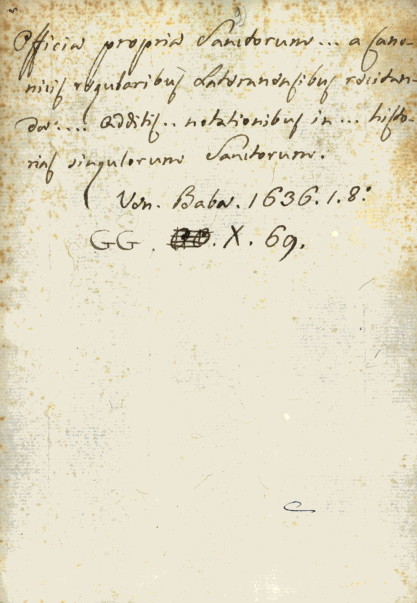 Officia propria Sanctorum... a Cano-
nicis regularibus Lateranensibus recitan-
da.... additis.. notationibus in... histo-
rias singulorum Sanctorum.
Ven. Baba. 1636. 1. 8.
GG. X. 69.